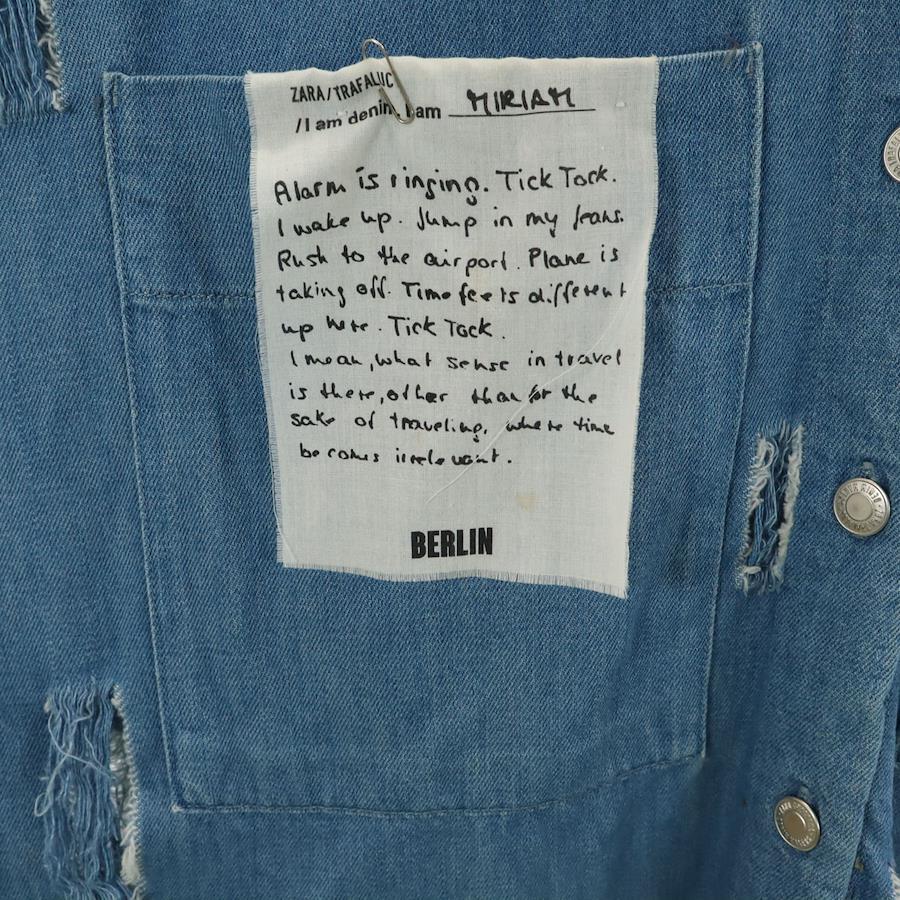 ZARA/TRAFALUC
/I am denim. I am MIRIAM
Alarm is ringing. Tick Tock.
I wake up. Jump in my jeans.
Rush to the airport. Plane is
taking off. Time feels different
up here. Tick Tock.
I mean, what sense in travel
is there, other than for the
sake of traveling, where time
becomes irrelevant.
BERLIN